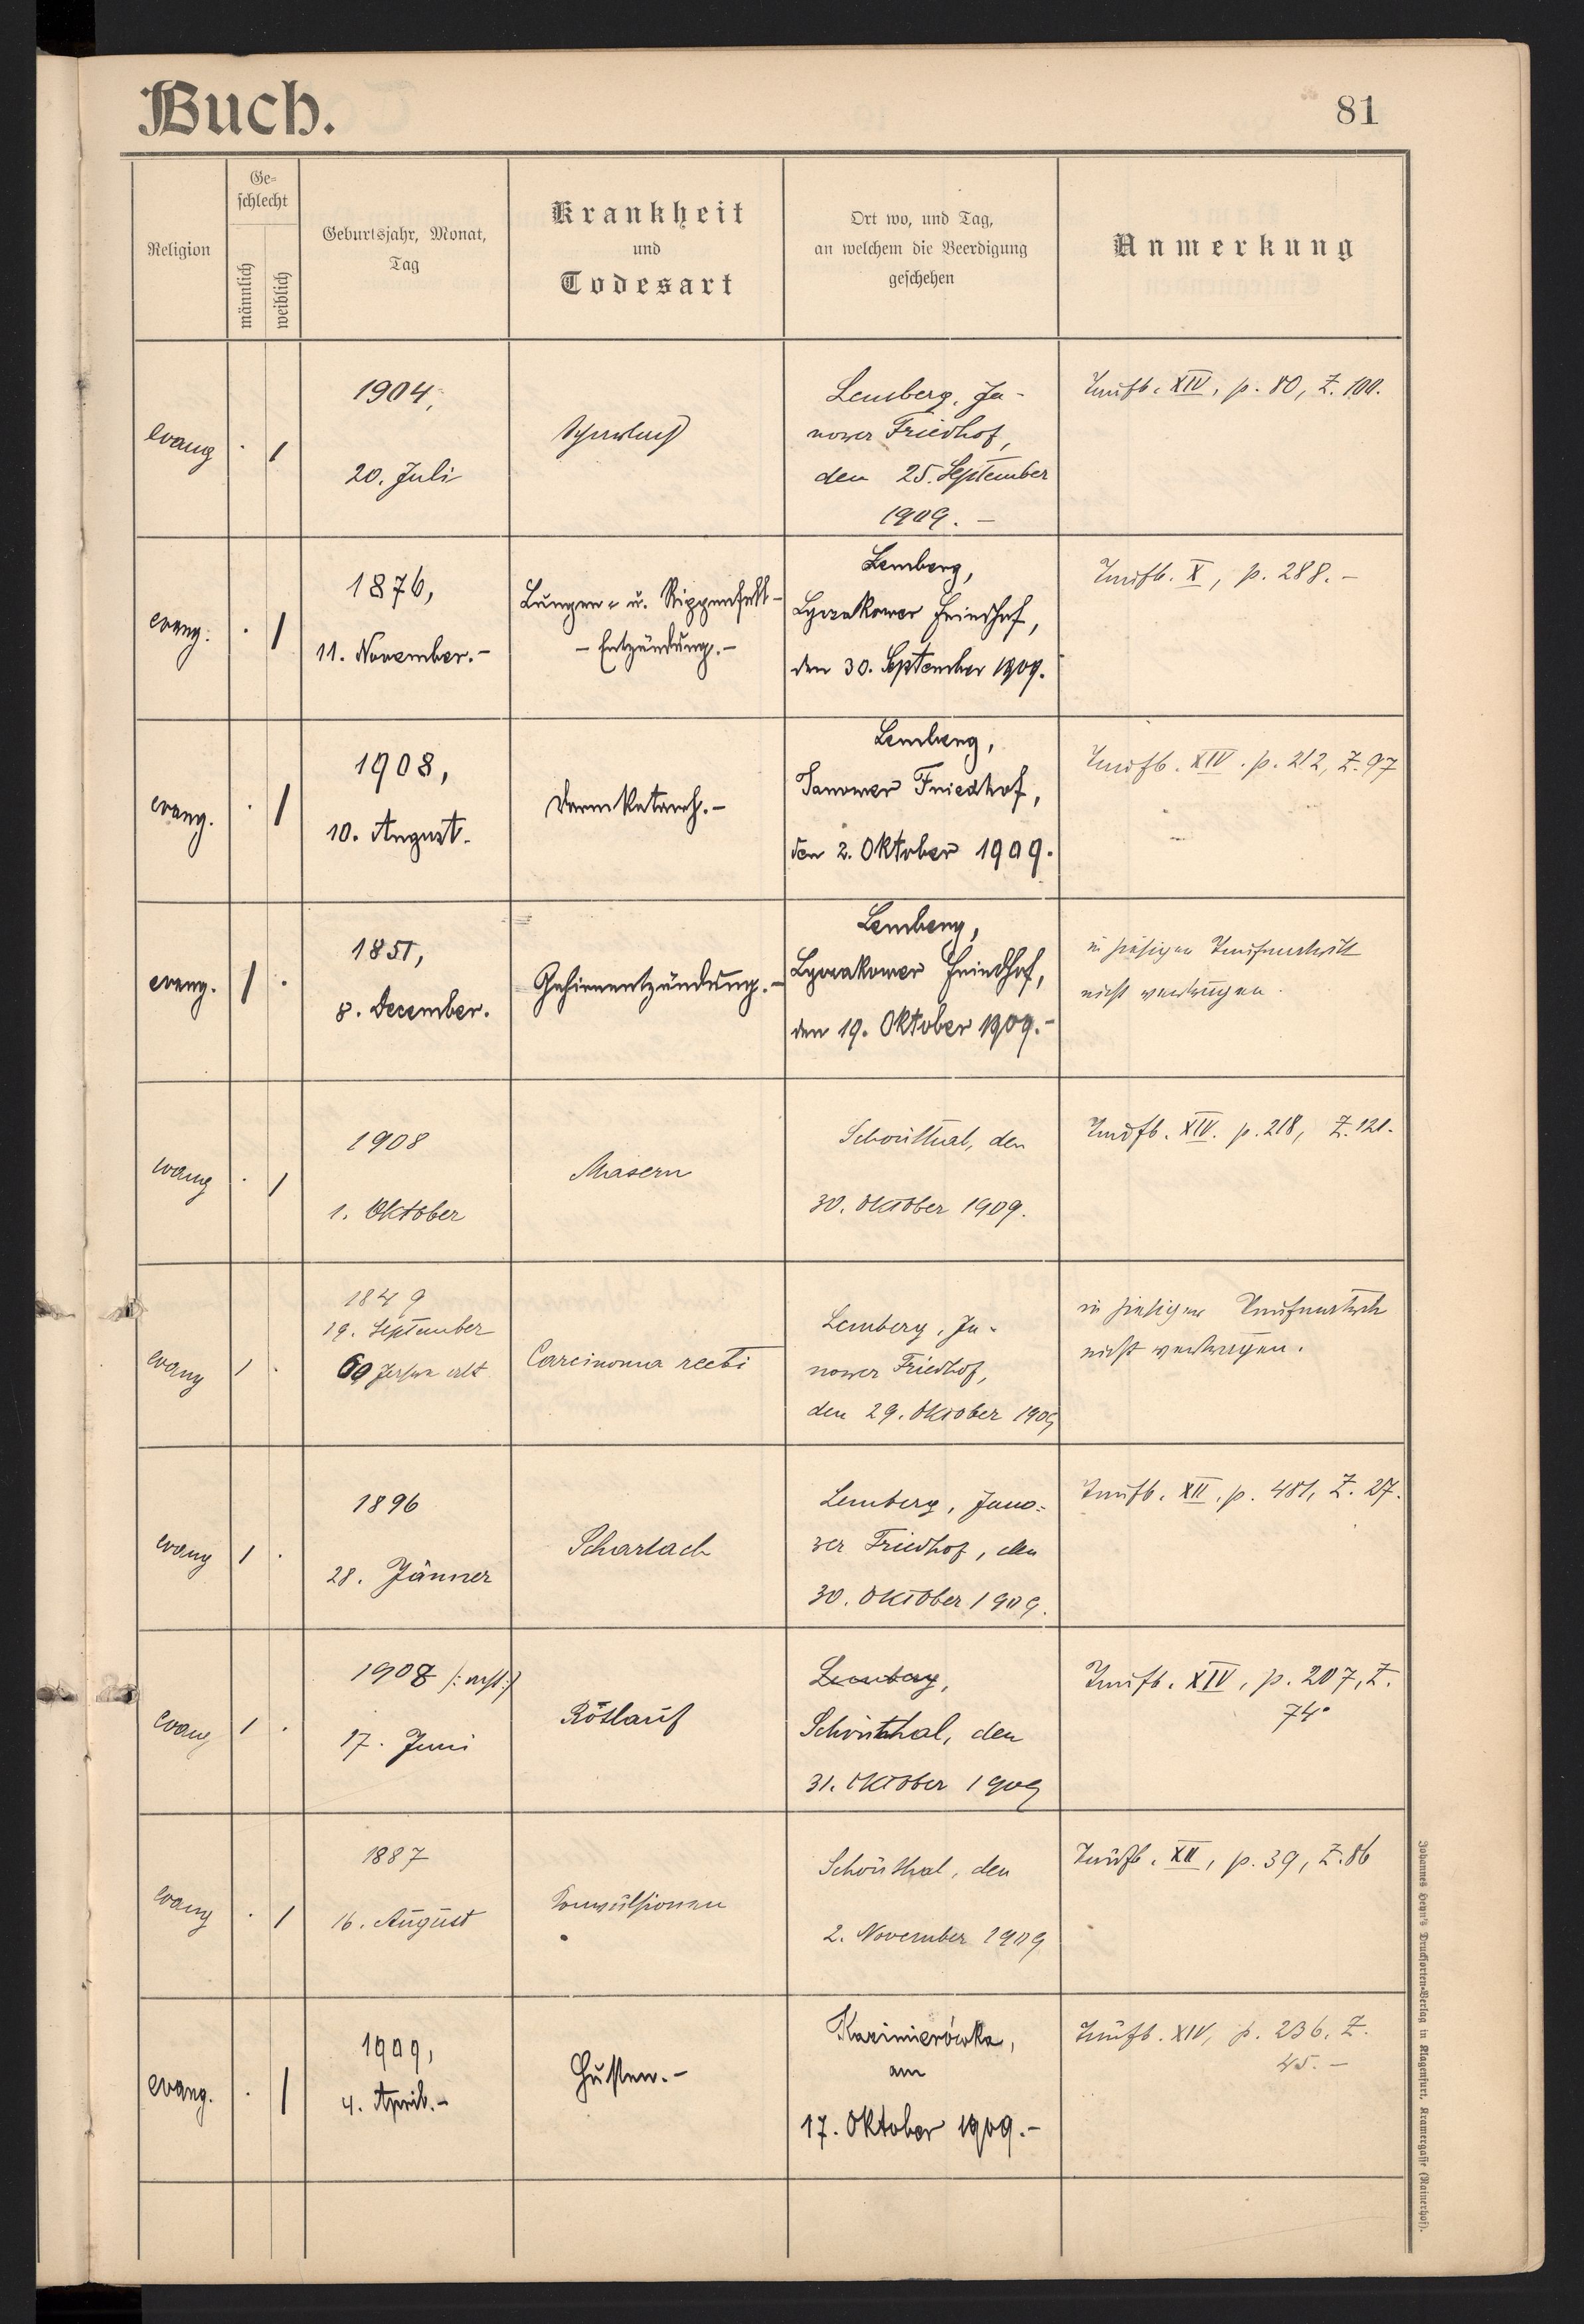 Buch.
81
Religion
Ge-
schlecht
männlich
weiblich
Geburtsjahr, Monat,
Tag
Krankheit
und
Todesart
Ort wo, und Tag,
an welchem die Beerdigung
geschehen
Anmerkung
evang
. 1
1904,
20. Juli
Scharlach
Lemberg, Ja-
nower Friedhof,
den 25. September
1909. –
Taufb. XIV, p. 80, Z. 100.
evang.
. 1
1876,
11. November. –
Lungen- u. Rippenfell-
- Entzündung. –
Lemberg,
Lyczakower Friedhof,
den 30. September 1909.
Taufb. X, p. 288. –
evang.
. 1
1908,
10. August.
Darmkatarrh. –
Lemberg,
Janower Friedhof,
den 2. Oktober 1909.
Taufb. XIV. p. 212, Z. 97
evang.
1 .
1851,
8. December.
Gehirnentzündung. –
Lemberg,
Lyczakower Friedhof,
den 19. Oktober 1909. –
in hiesigen
nicht
evang
. 1
1908
1. Oktober
Masern
Schönthal, den
30. Oktober 1909.
Taufb. XIV. p. 218, Z. 121.
evang
1 .
1849
19. September
60 Jahre alt
Carcinoma recti
Lemberg, Ja-
nower Friedhof,
den 29. Oktober 1909
in hiesigen
nicht
evang
1 .
1896
28. Jänner
Scharlach
Lemberg, Jano-
wer Friedhof, den
30. Oktober 1909.
Taufb. XII, p. 481, Z. 27.
evang
1 .
1908 /: acht :/
17. Juni
Rötlauf
Lemberg,
Schönthal, den
31. Oktober 1909
Taufb. XIV, p. 207, Z.
74.
evang
. 1
1887
16. August
Konvulsionen
Schönthal, den
2. November 1909
Taufb. XII, p. 39, Z. 86
evang.
. 1
1909,
4. April. –
Husten. –
Kazimierówka,
am
17. Oktober 1909. –
Taufb. XIV, p. 236, Z.
45. –
Johannes Heyn's Drucksorten-Verlag in Klagenfurt, Kramergasse (Rainerhof).